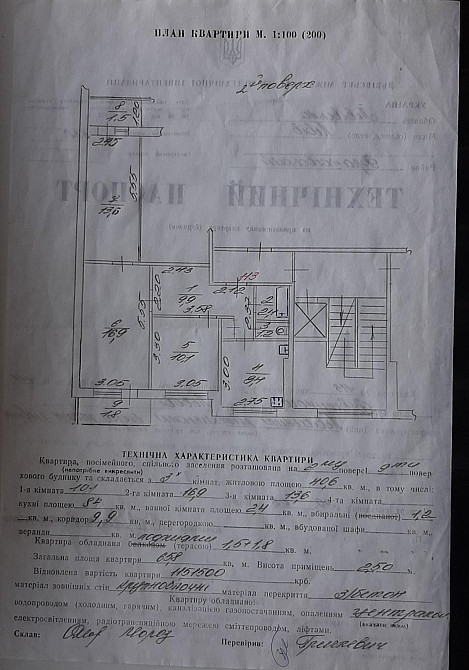 ПЛАН КВАРТИРИ М. 1:100 (200)
2й поверх
8
1.5
1.00
2.45
5.55
13,6
113
2.43
2.12
1
9.9
2.20
3.58
2
2.4
3
1.2
6
16,9
5.55
3.30
5
10.1
3.00
4
8,4
3.05
3.05
2.75
9
1.8
ТЕХНІЧНИЙ ПАСПОРТ
УКРАЇНА
ТЕХНІЧНА ХАРАКТЕРИСТИКА КВАРТИРИ
Квартира, посімейного, спільного заселення розташована на 2му поверсі 9ти повер
(непотрібне викреслити)
хового будинку та складається з 3х кімнат, житловою площею 40,6 кв. м., в тому числі:
1-а кімната 10,1 2-га кімната 16,9 3-я кімната 13,6 4-та кімната
кухні площею 8,4 кв. м., ванної кімнати площею 2,4 кв. м., вбиральні (поєднаної) 1,2
кв. м., коридор 9,9 кв. м., перегородкою кв. м., вбудованої шафи кв. м.,
веранди кв. м. лоджиями
Квартира обладнана балконом (терасою) 1,5+1,8 кв. м.
Загальна площа квартири 65,8 кв. м. Висота приміщень 2,50 м.
Відновлена вартість квартири 1151500 крб.
матеріал зовнішніх стін крупноблочні матеріал перекриття з/бетон
Квартиру обладнано:
водопроводом (холодним, гарячим), каналізацією газопостачанням, опаленням централ
(вказати яким)
електроосвітленням, радіотрансляційною мережею сміттєпроводом, ліфтами.
Склав: Перевірив: